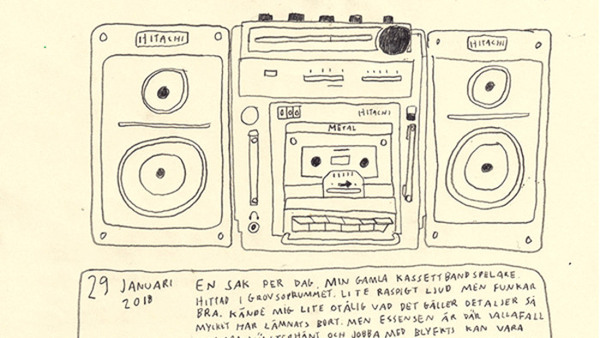 HITACHI
HITACHI
000
HITACHI
METAL
29 JANUARI
2010
EN SAK PER DAG. MIN GAMLA KASSETTBANDSPELARE.
HITTAD I GROVSOPRUMMET. LITE RASPIGT LJUD MEN FUNKAR
BRA. KÄNDE MIG LITE OTÅLIG VAD DET GÄLLER DETALJER SÅ
MYCKET HAR LÄMNATS BORT. MEN ESSENSEN ÄR DÄR VALLAFALL
OCH JOBBA MED BLYERTS KAN VARA